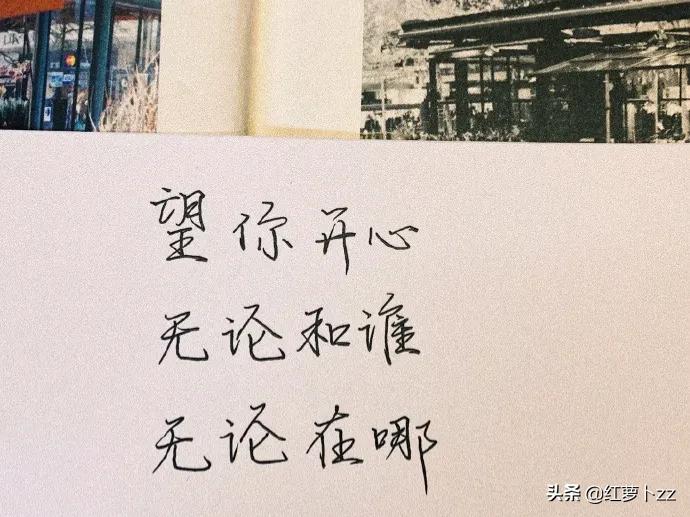 望你开心
无论和谁
无论在哪
头条 @红萝卜zz